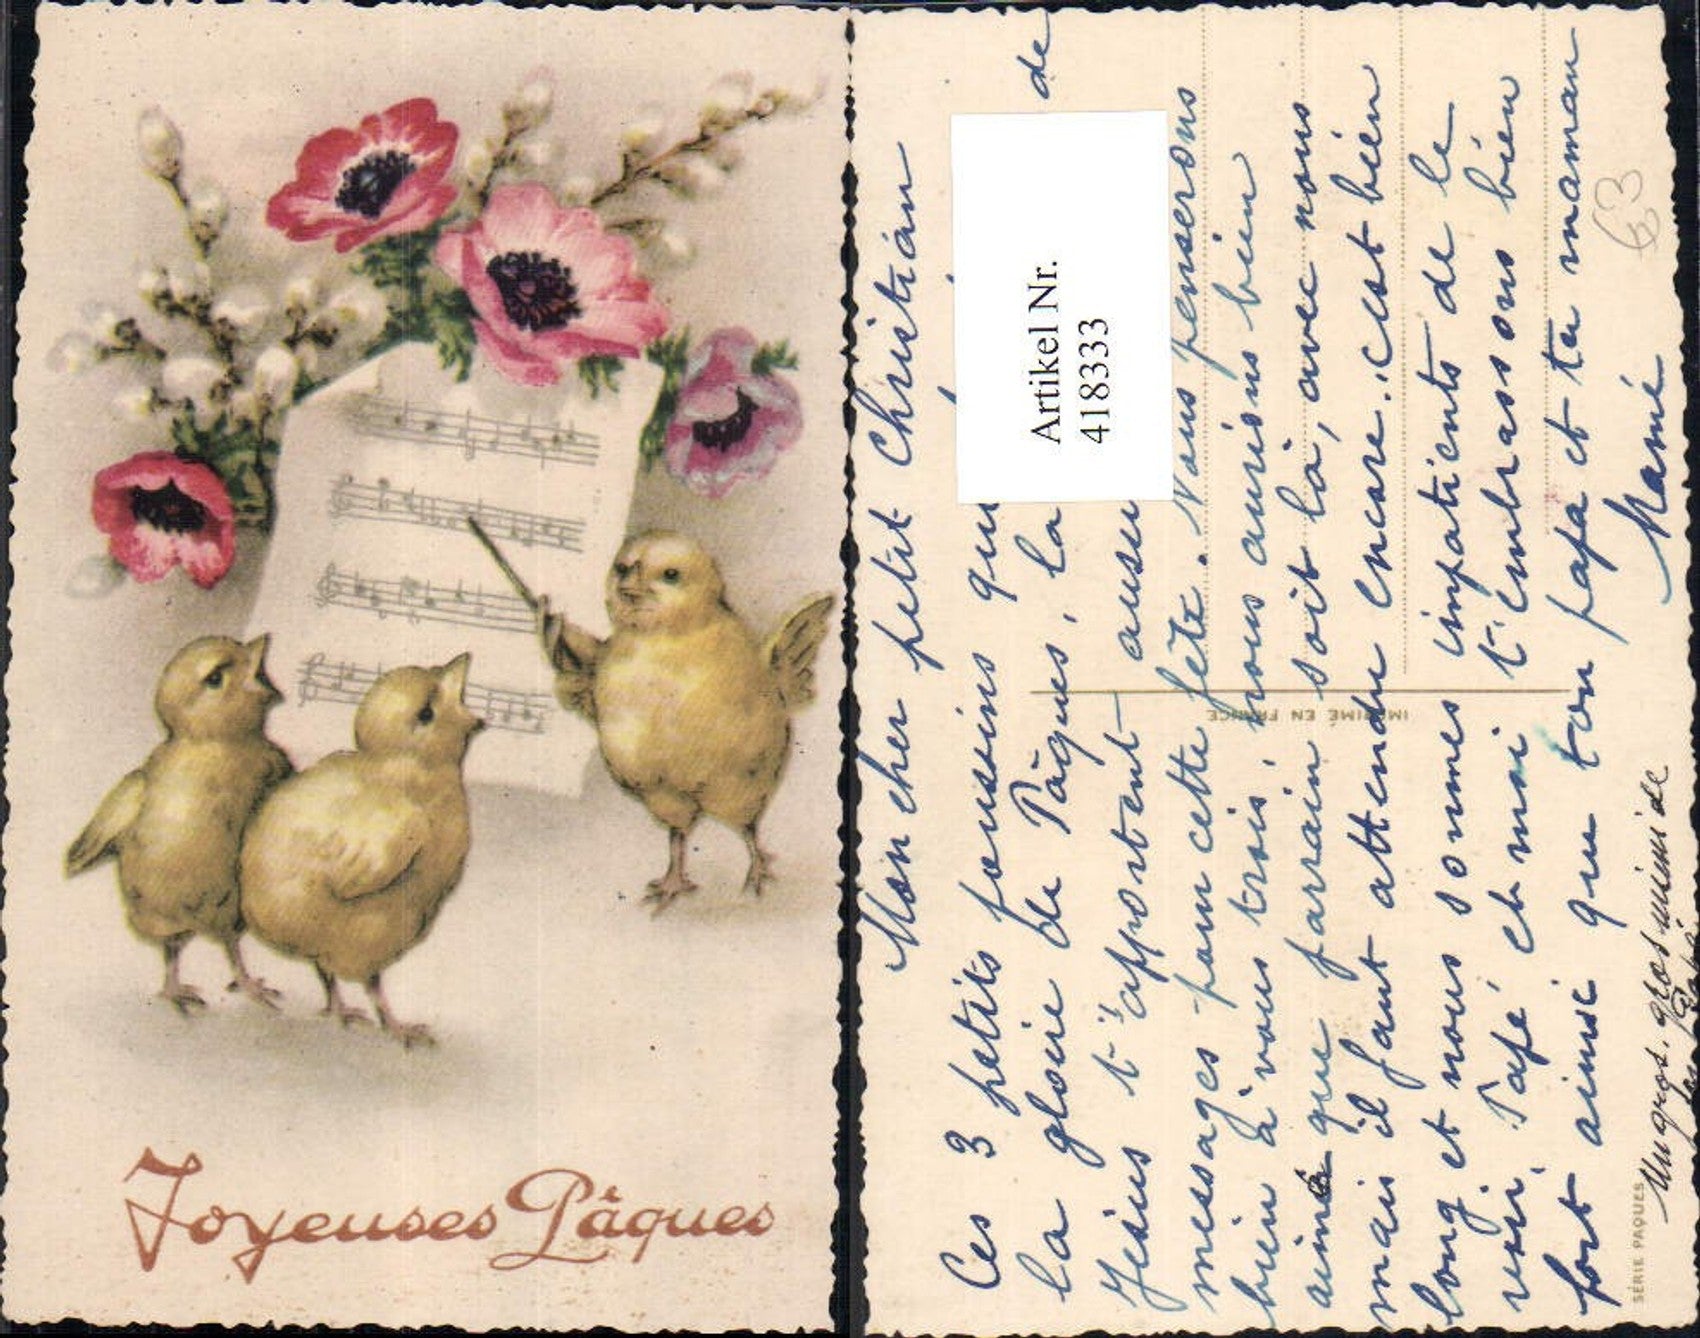 Joyeuses Pâques
Mon cher petit Christian
Ces 3 petits poussins qui
la gloire de Pâques, la de
Jésus t'apportent aussi
messages pour cette fête. Nous penserons
bien à vous trois, nous aurions bien
aimé que parrain soit là, avec nous
mais il faut attendre encore. C'est bien
long et nous sommes impatients de le
Papé et moi t'embrassons bien
fort ainsi que ton papa et ta maman
Mamé
Artikel Nr.
418333
IMPRIMÉ EN FRANCE
SÉRIE PAQUES
63
de